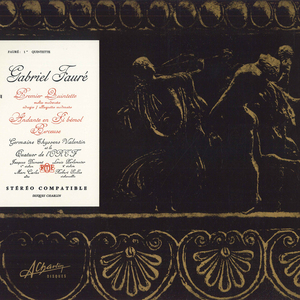 FAURÉ: 1er QUINTETTE
Gabriel Fauré
Premier Quintette
Andante en Si bémol
Berceuse
Germaine Thyssens Valentin
et le
Quatuor de l'O.R.T.F.
Jacques Dumont
Marc Carles Robert Salles
STÉRÉO COMPATIBLE
JACQUES CHARLIN
A Charlin
DISQUES